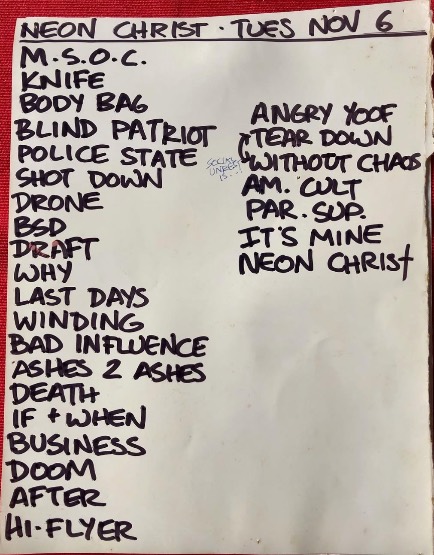 NEON CHRIST · TUES NOV 6
M.S.O.C.
KNIFE
BODY BAG
BLIND PATRIOT
POLICE STATE
SHOT DOWN
DRONE
BSD
DRAFT
WHY
LAST DAYS
WINDING
BAD INFLUENCE
ASHES 2 ASHES
DEATH
IF + WHEN
BUSINESS
DOOM
AFTER
HI-FLYER
ANGRY YOOF
TEAR DOWN
SOCIAL
UNREST
IS...!
WITHOUT CHAOS
AM. CULT
PAR. SUP.
IT'S MINE
NEON CHRIST